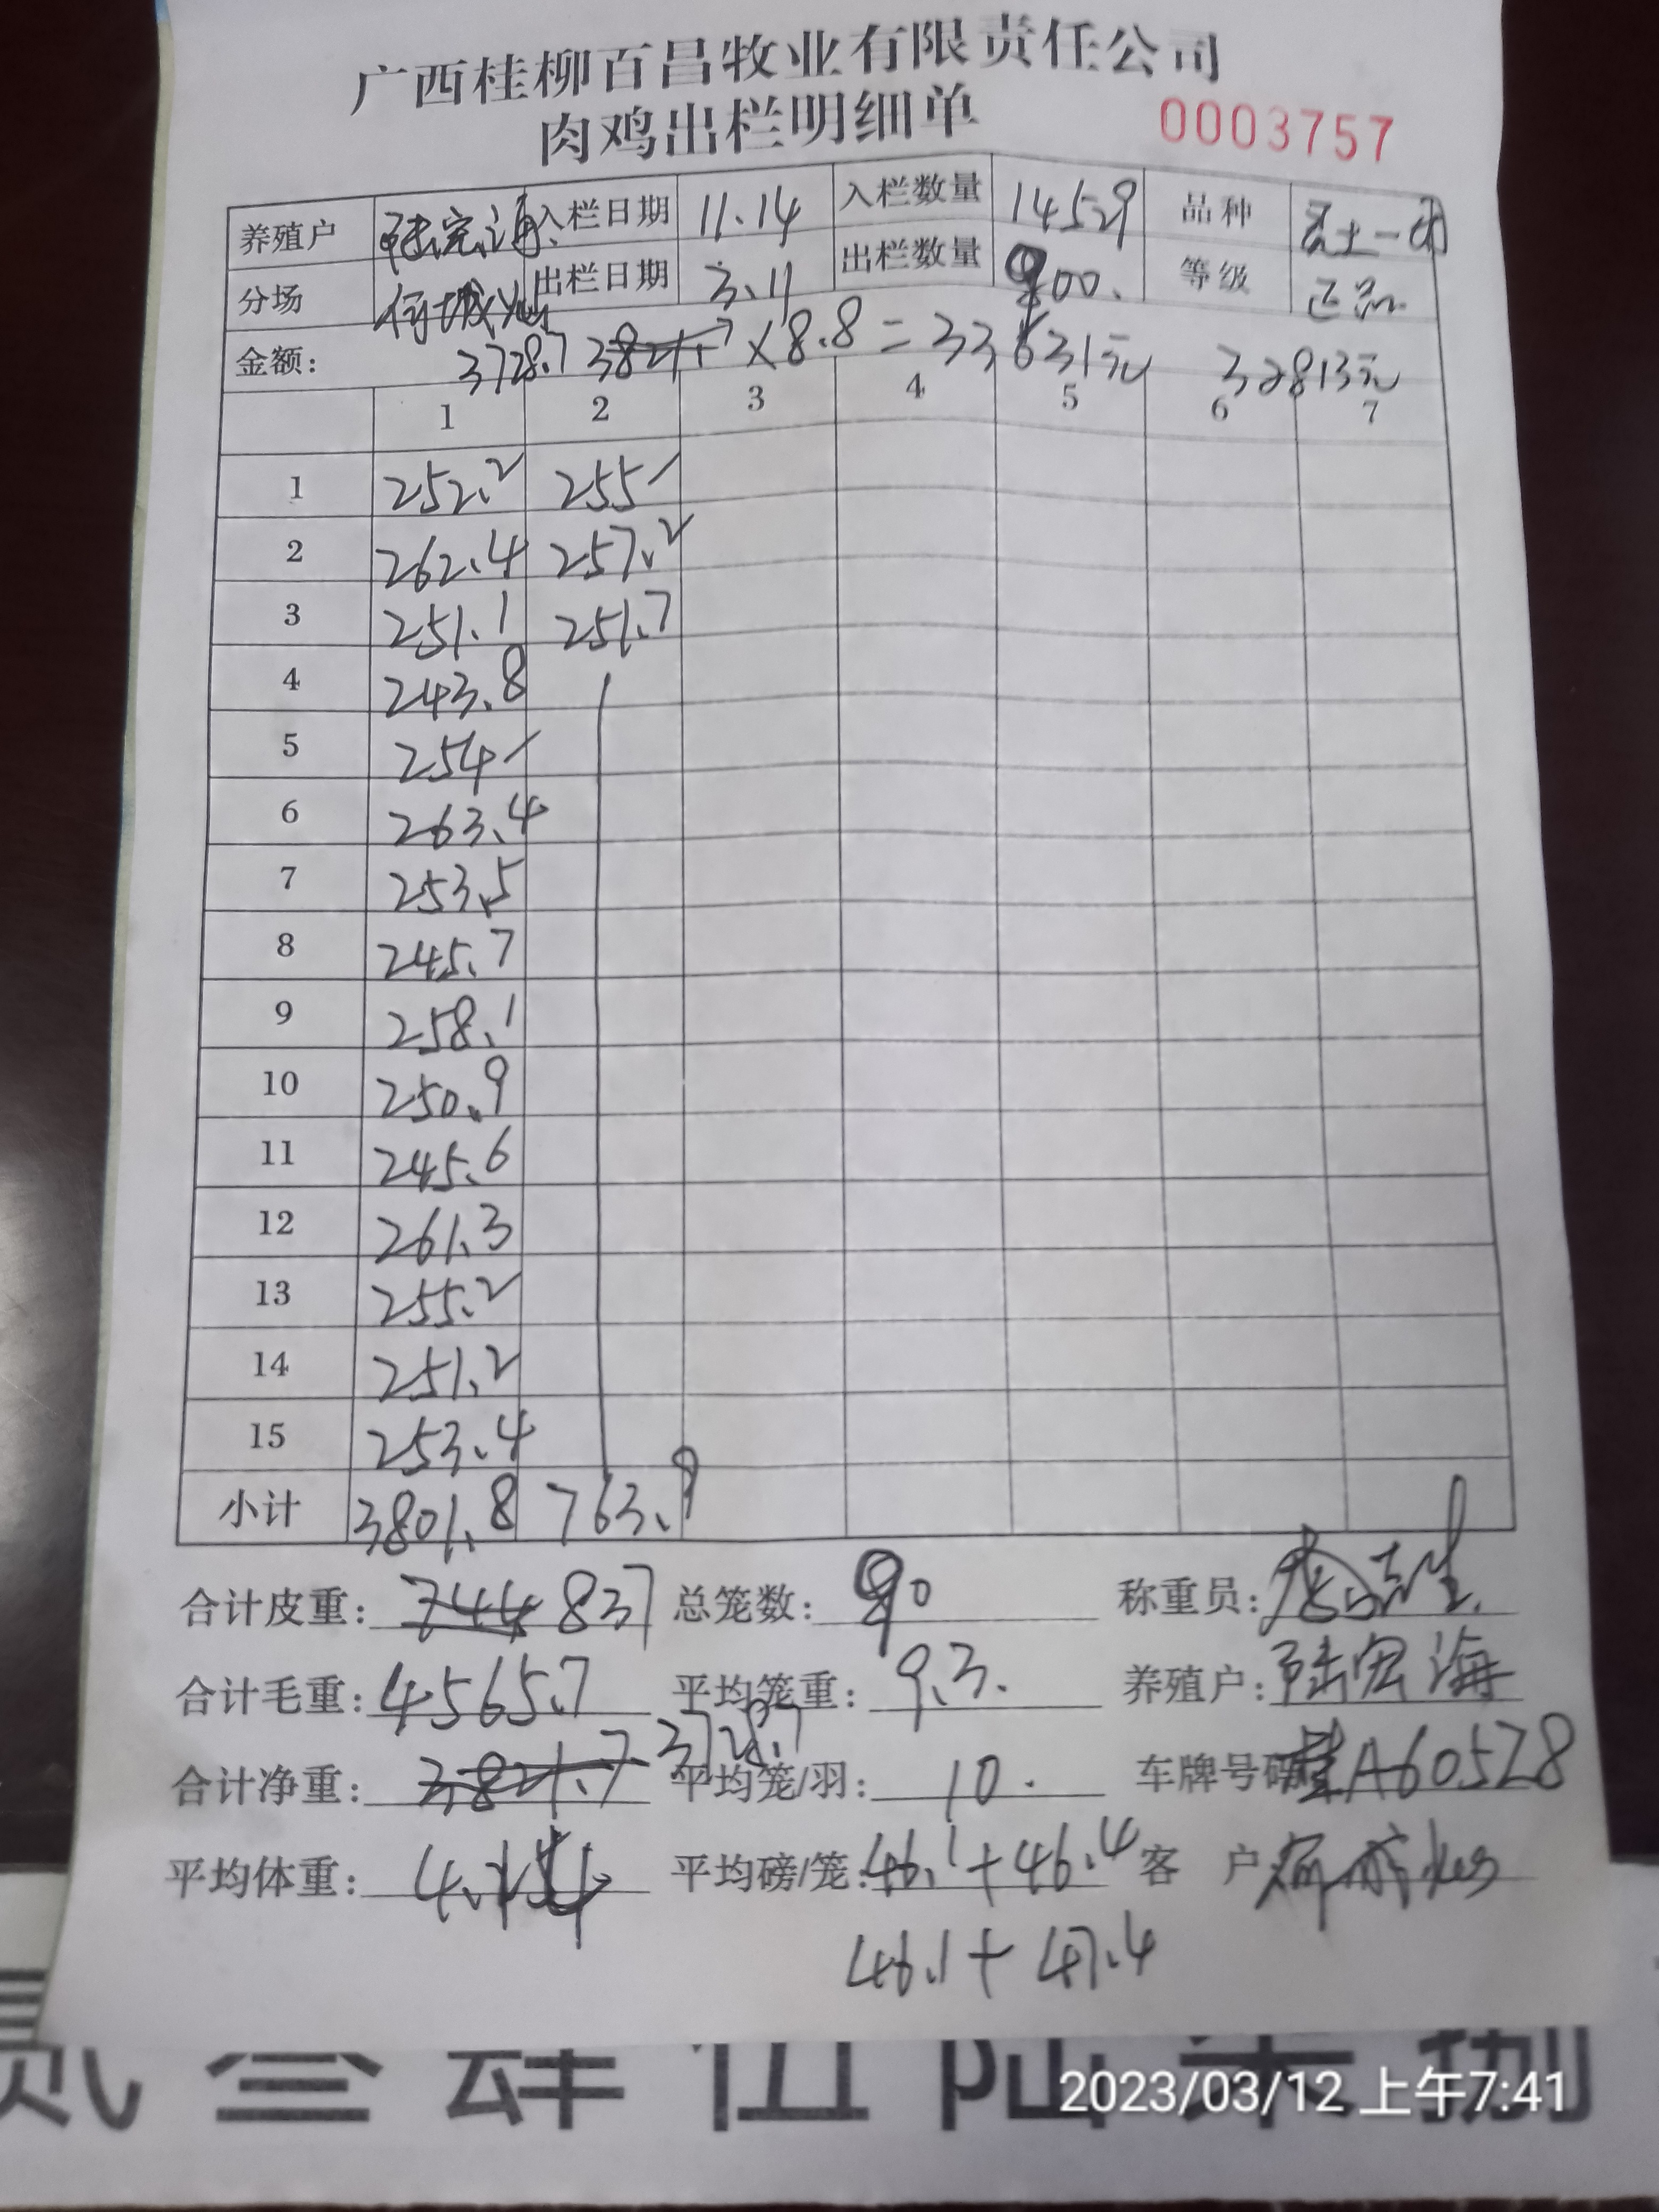 广西桂柳百昌牧业有限责任公司
肉鸡出栏明细单 0003757
养殖户 陆宏海 入栏日期 11.14 入栏数量 14529 品种
分场 出栏日期 3.11 出栏数量 900. 等级 正品
金额: 3728.7 3821.7 × 8.8 = 33631元 32813元
1 2 3 4 5 6 7
1 252.2 255
2 262.4 257.2
3 251.1 251.7
4 243.8
5 254
6 263.4
7 253.5
8 245.7
9 258.1
10 250.9
11 245.6
12 261.3
13 255.2
14 251.2
15 253.4
小计 3801.8 763.9
合计皮重: 744 837 总笼数: 90 称重员:
合计毛重: 4565.7 平均笼重: 9.3. 养殖户: 陆宏海
合计净重: 3821.7 3728.7 平均笼/羽: 10. 车牌号码 桂A60528
平均体重: 平均磅/笼: 46.1+46.4 客 户
46.1+47.4
贰 叁 肆 伍 陆 柒 捌
2023/03/12 上午7:41